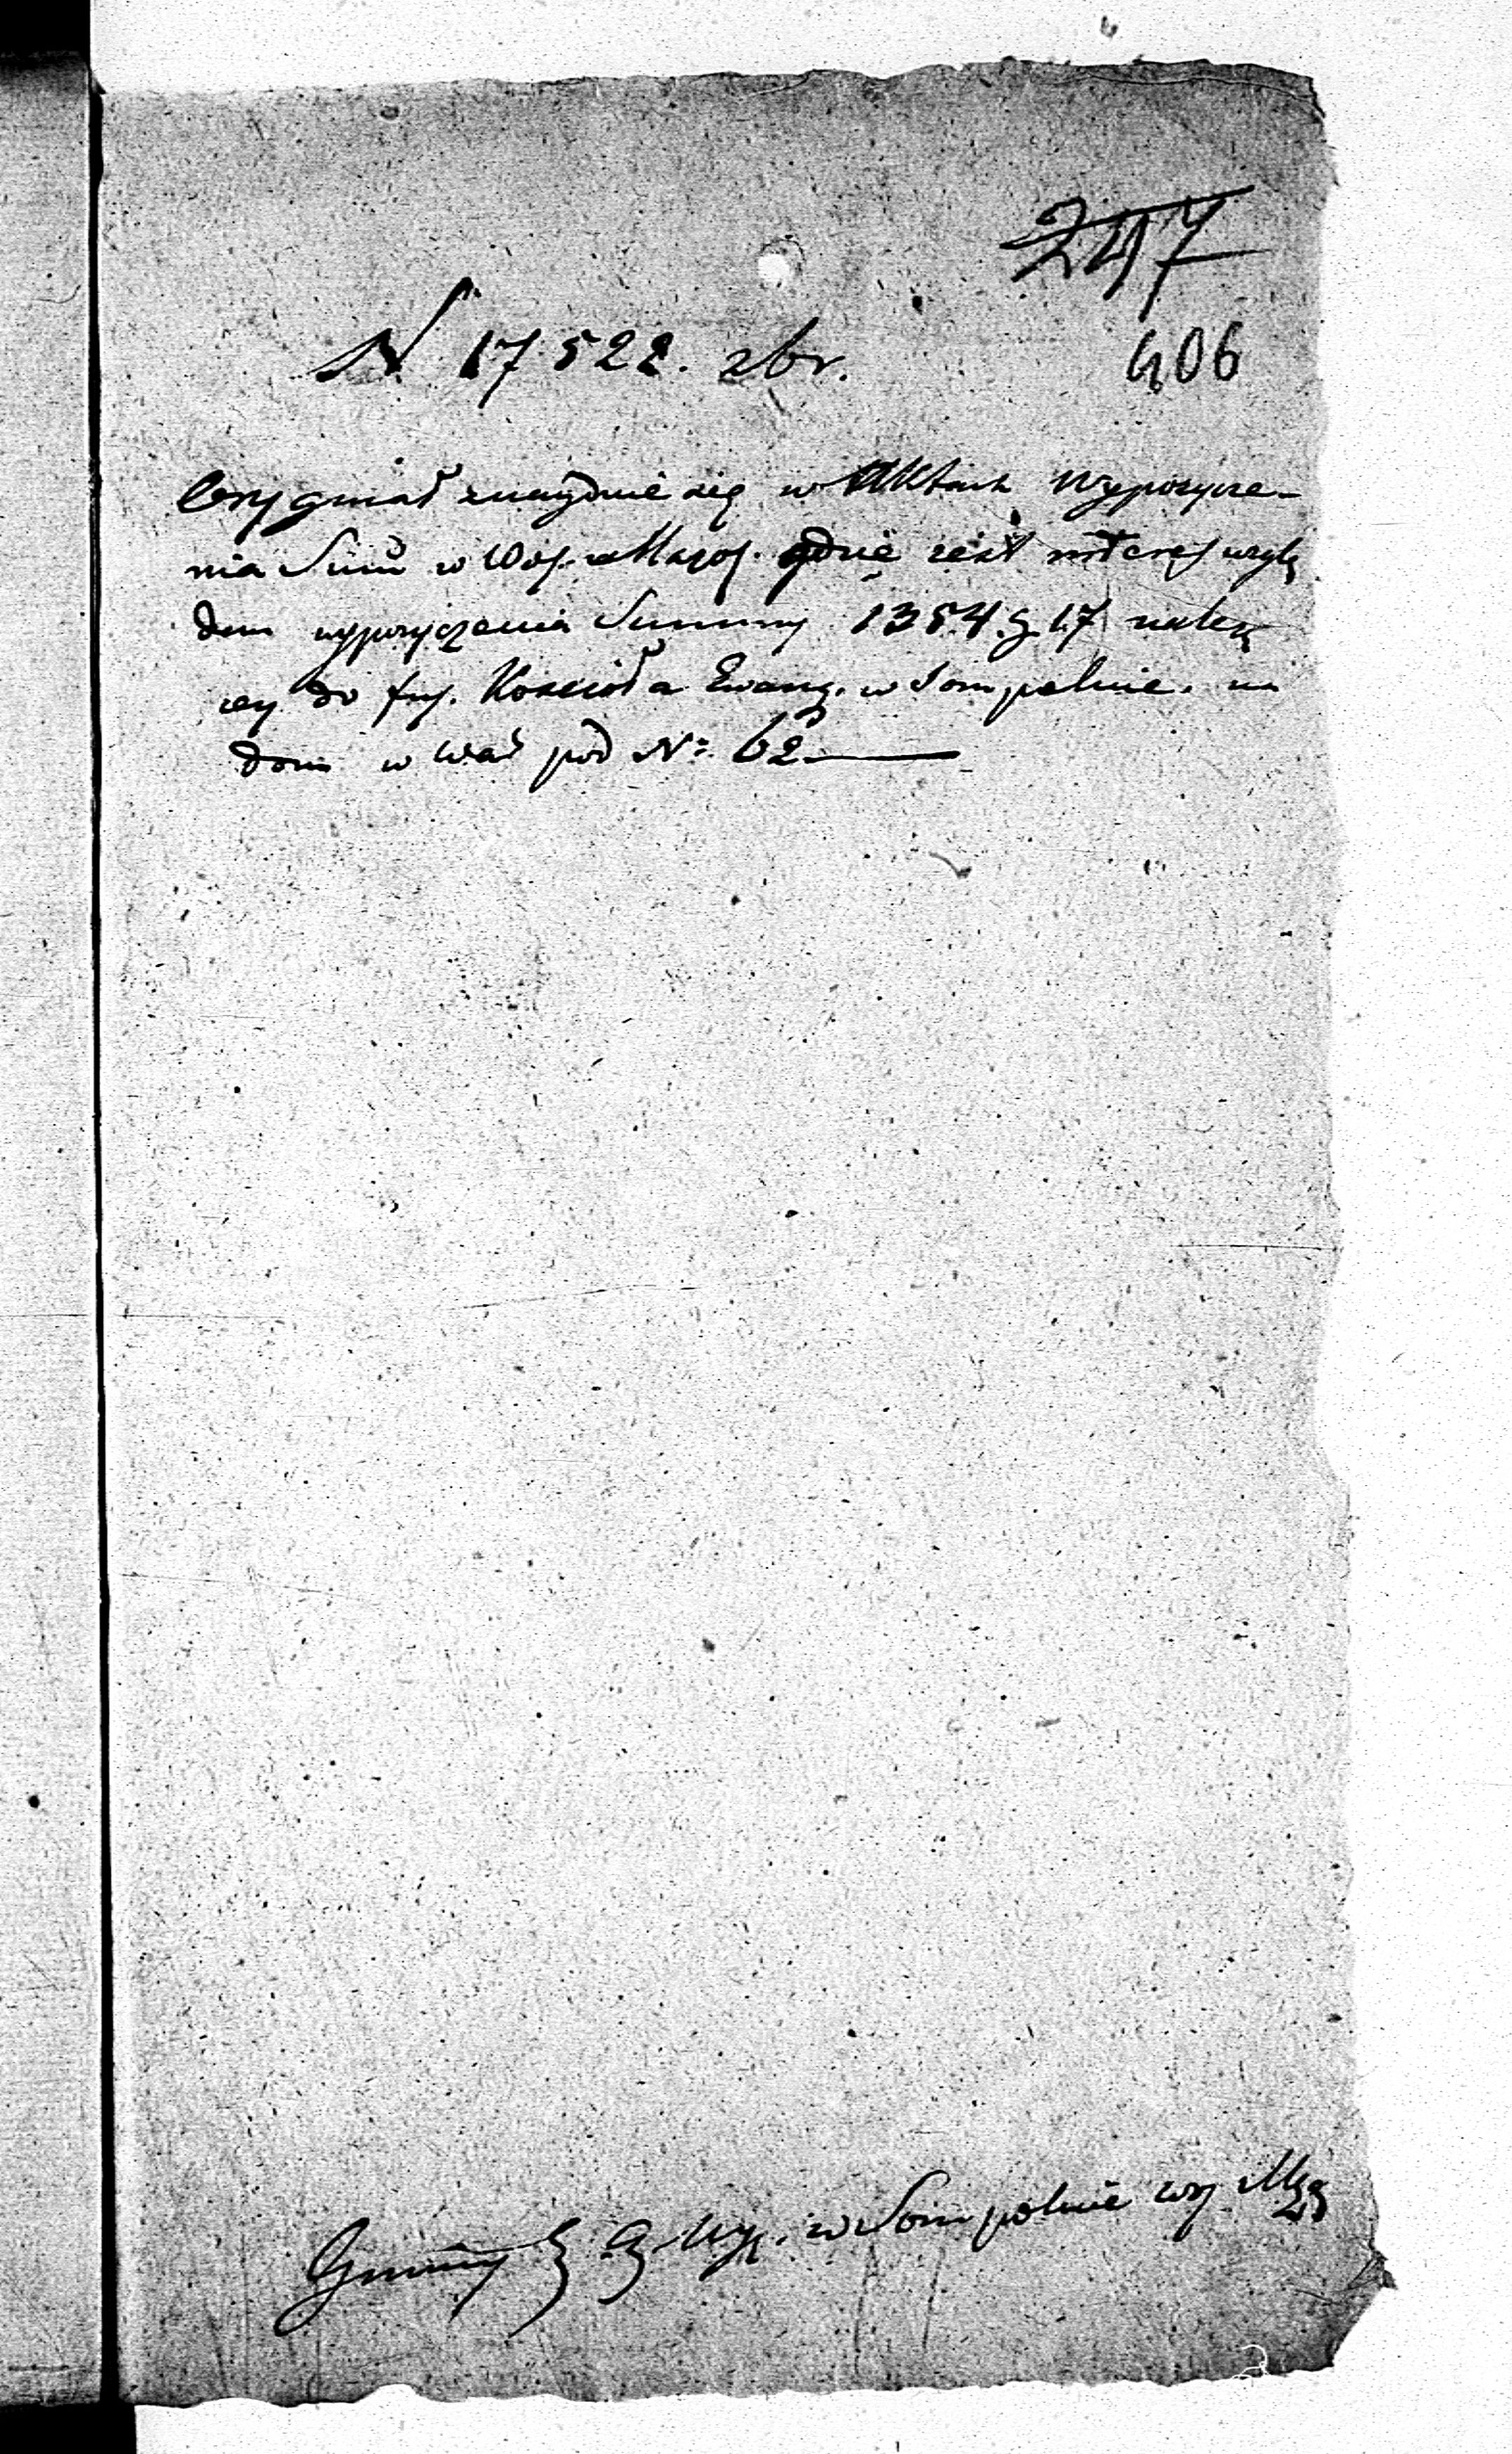 247
406
N 17522. zbr.
Orygniał znayduie się w Aktach Wypożycze-
nia Sum̃ w Woj. Mazo. gdzie jest wzglę
dem wypożyczenia Summy 1354. g. 17 należą
cey do fuj. Kościoła Ewang. w Sompolnie. na
dom w Wał pod No: 62
Gminy E. A. Wy. w Sompolnie